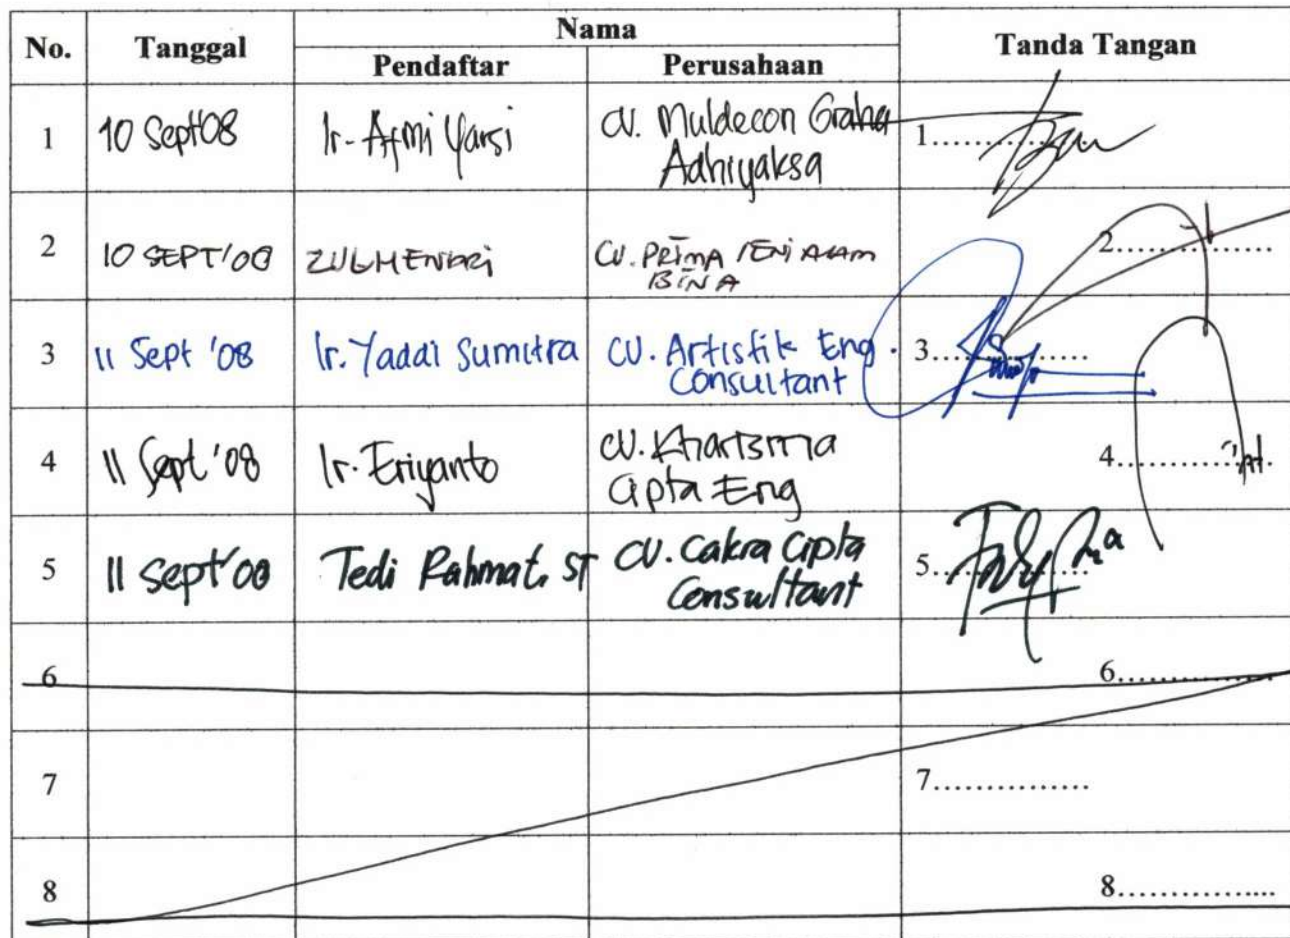 No. Tanggal Nama Tanda Tangan
Pendaftar Perusahaan
1 10 Sept'08 Ir. Afmi Yarsi CV. Muldecon Graha 1...............
Adhiyaksa
2 10 SEPT'08 CV. PRIMA 2...............
BINA
3 11 Sept '08 Ir. Yaddi Sumitra CV. Artistik Eng. 3...............
Consultant
4 11 Sept '08 Ir. Eriyanto CV. Kharisma 4...............
Cipta Eng
5 11 Sept'08 Tedi Rahmat, ST CV. Cakra Cipta 5...............
Consultant
6 6...............
7 7...............
8 8...............